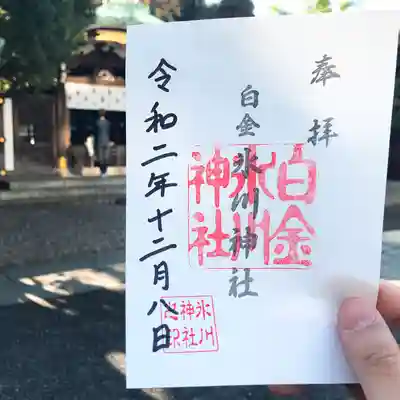 奉拝
白金氷川神社
白金
氷川
神社
令和二年十二月八日
氷川
神社